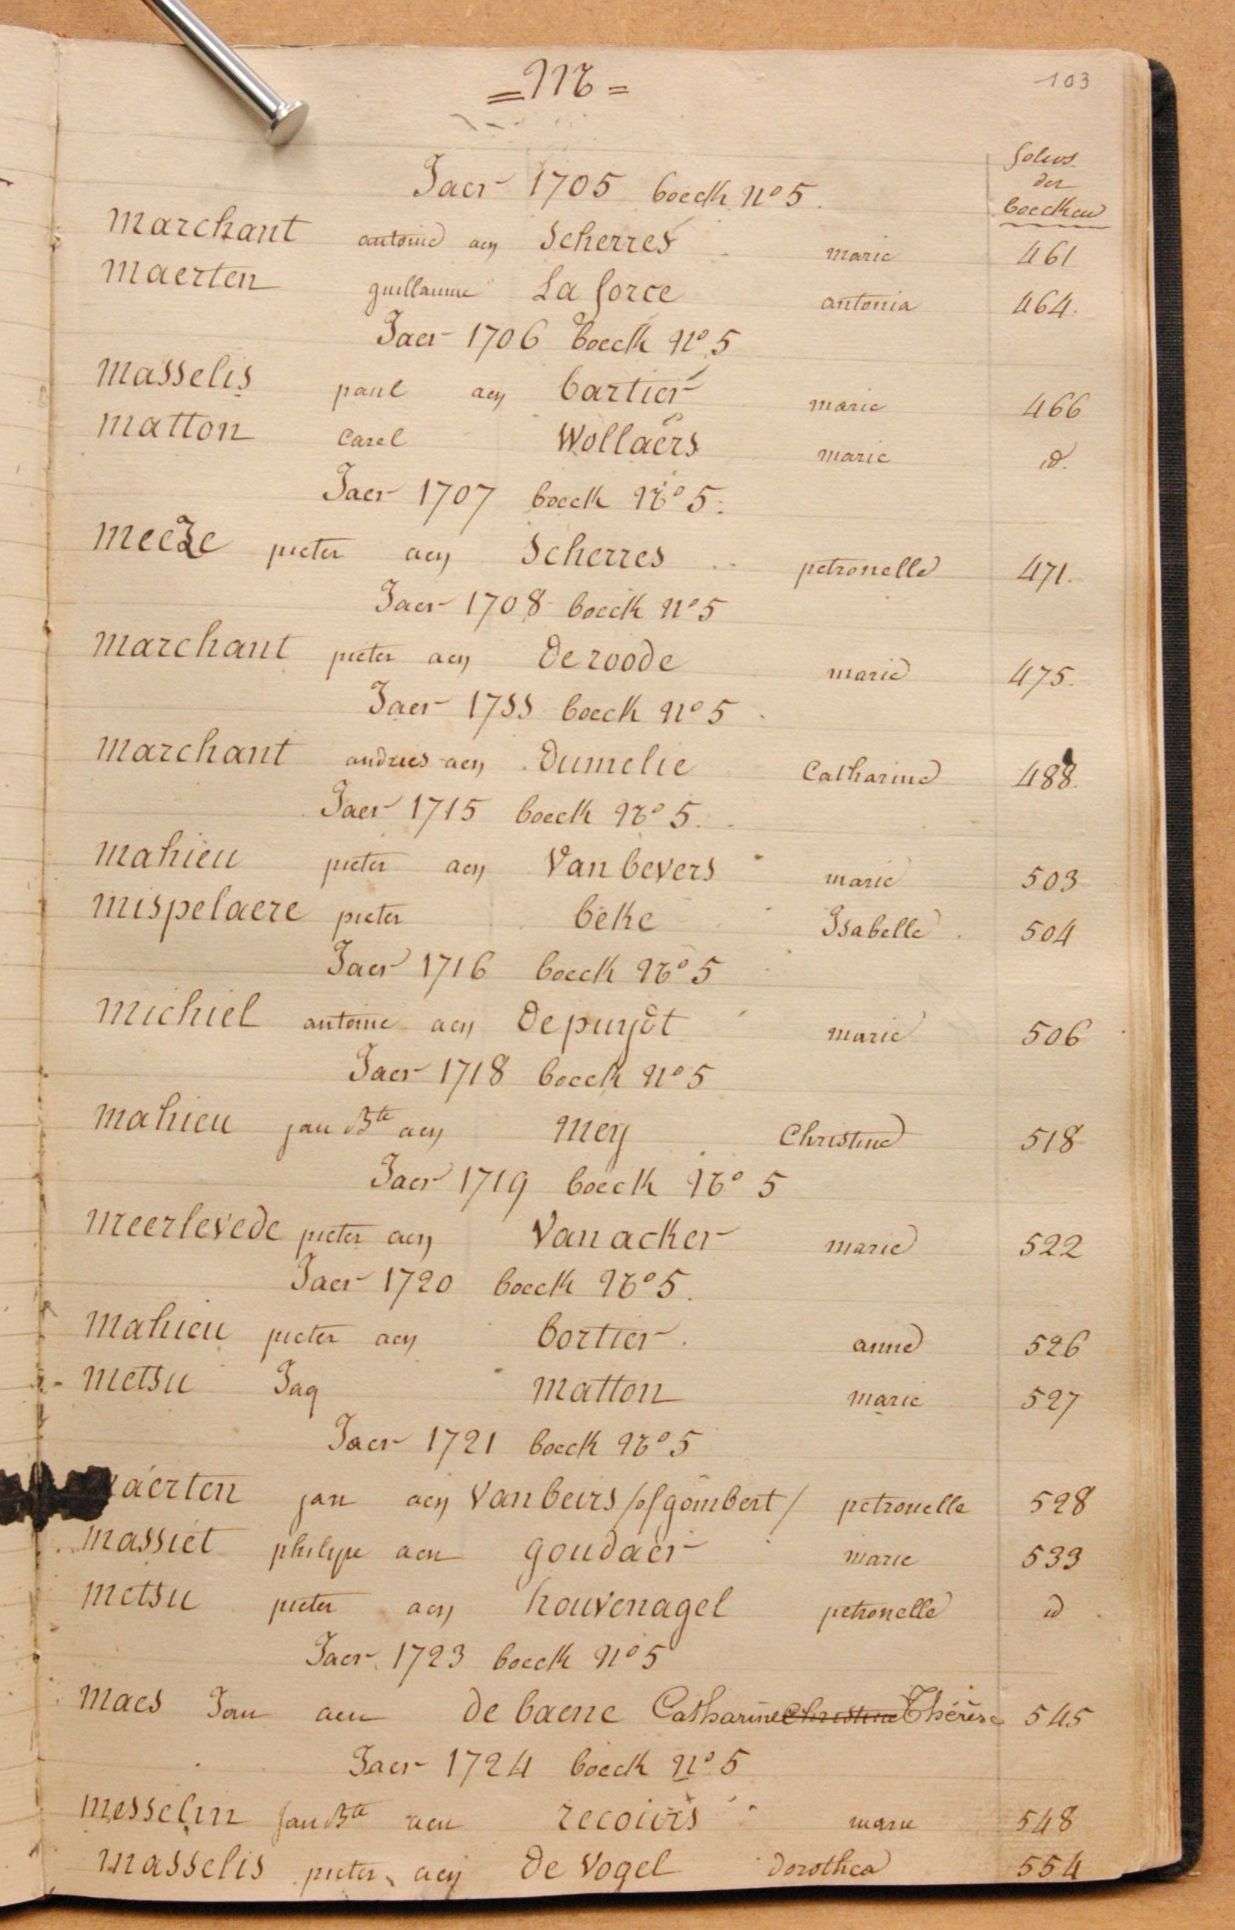 = M =
103
folios
der
boecken
Jaer 1705 boeck No 5.
marchant antoine aen Scherres marie 461
maerten guillaume La force antonia 464.
Jaer 1706 boeck No 5
masselis paul aen bartier marie 466
matton Carel Wollaers marie id.
Jaer 1707 boeck No 5.
meeze pieter aen Scherres petronelle 471.
Jaer 1708 boeck No 5
marchant pieter aen De roode marie 475.
Jaer 17SS boeck No 5
marchant andries aen Dumelie Catharine 488.
Jaer 1715 boeck No 5.
mahieu pieter aen Van bevers marie 503
mispelaere pieter beke Isabelle 504
Jaer 1716 boeck No 5
michiel antoine aen De puydt marie 506
Jaer 1718 boeck No 5
mahieu jan Bte aen Mey Christine 518
Jaer 1719 boeck No 5
meerlevede pieter aen Van acker marie 522
Jaer 1720 boeck No 5.
mahieu pieter aen bortier anne 526
metsu Jaq matton marie 527
Jaer 1721 boeck No 5
aerten jan aen Van beirs /of gombert/ petronelle 528
massiet philipe aen goudaer marie 533
metsu pieter aen houvenagel petronelle id
Jaer 1723 boeck No 5
maes Jan aen de baene Catharine Christine Thérèse 545
Jaer 1724 boeck No 5
messelin Jan Bte aen recoirs marie 548
masselis pieter aen De Vogel Dorothea 554